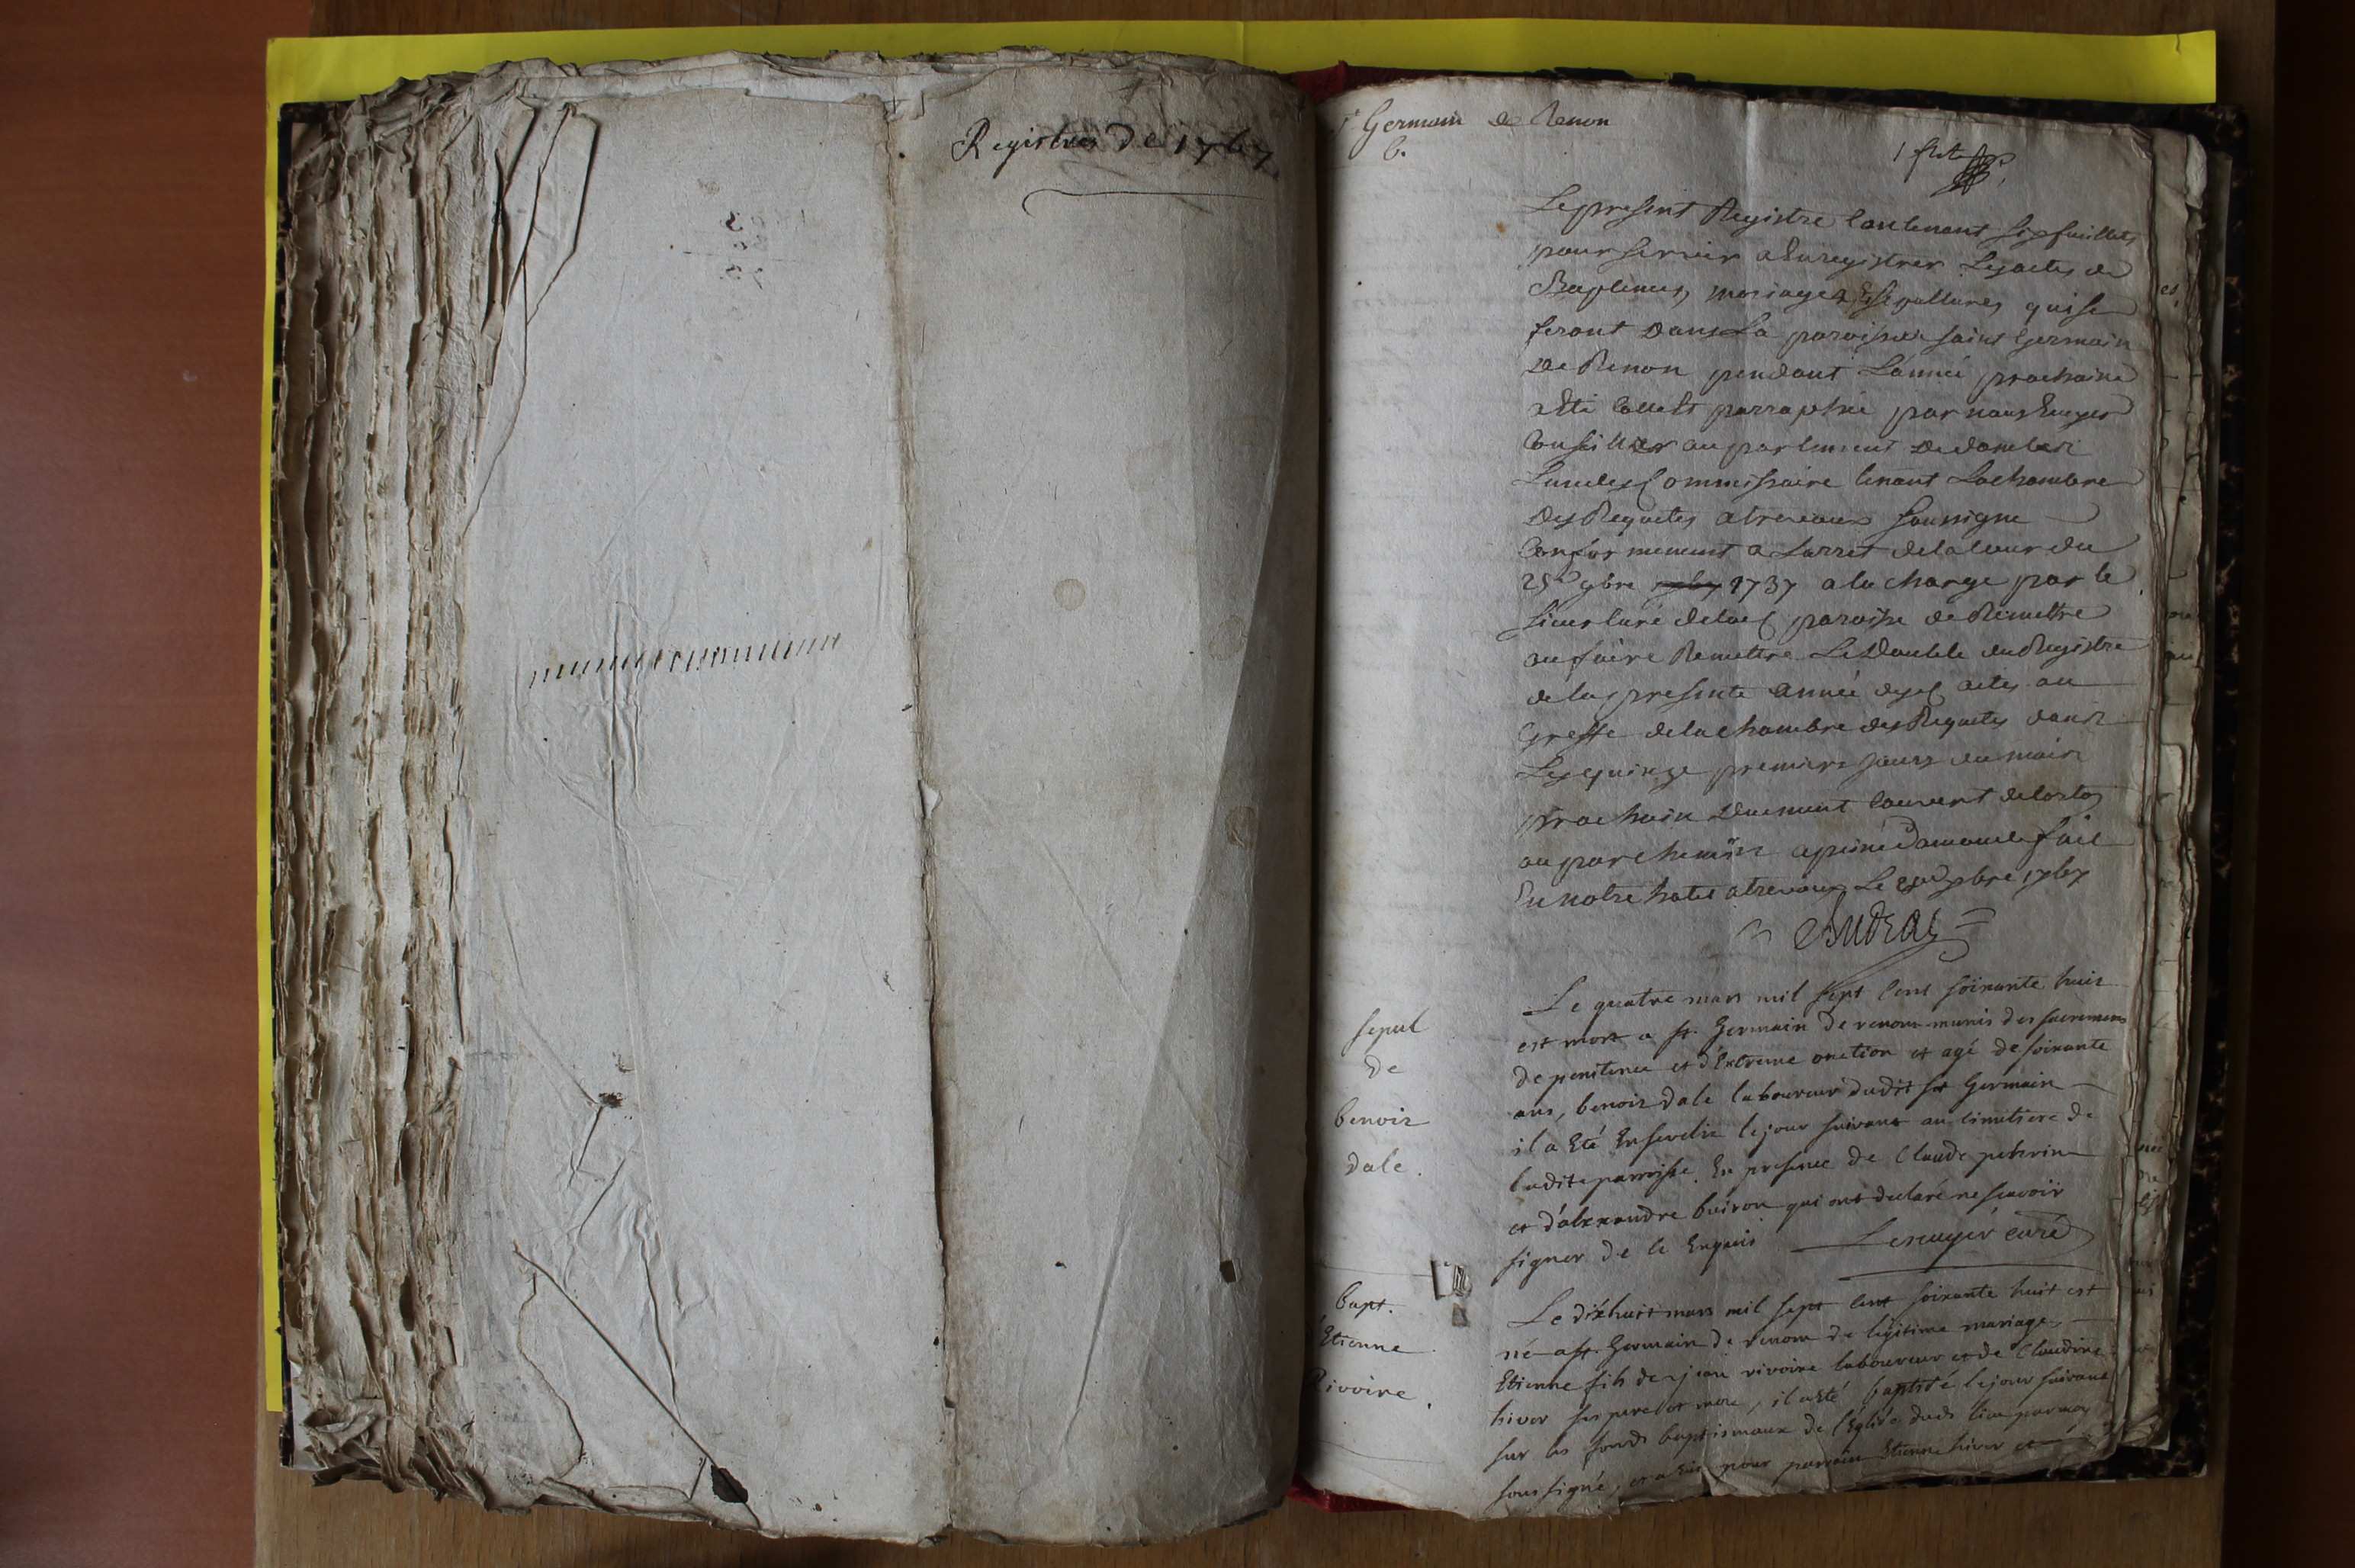 Registres de 1767
St Germain de Renon
6.
1 flet
Le present Registre Contenant six fuillets
pour servir a Enregistrer Les actes de
Baptemes, mariages Et sepultures qui se
feront dans La paroisse saint Germain
de Renon pendant L'année prochaine
a Eté Cotté Et parraphée par nous Ecuyer
Conseiller au parlement de dombes
L'un des Commissaire tenant La chambre
des Requetes a trevoux soussigne
Conformement a Larret de la Cour du
9bre 1737 a la charge par le
sieur Curé de lad paroisse de Remettre
ou faire Remettre Le double du Registre
de la presente année desd actes au
Greffe de la chambre des Requetes dans
Les quinze premiers jours du mois
prochain duement Couvert de Carton
ou parchemin a peine d'amande fait
En notre hotel a trevoux Le xbre 1767
Le quatre mars mil sept Cent soixante huit
est mort a st. Germain de renon munis des sacremens
de penitence et d'Extreme onction et agé de soixante
ans, benoit dale laboureur dudit st Germain
il a Eté Enseveli le jour suivant au Cimetiere de
ladite parroisse. En presence de Claude
et d'alexandre buiron qui ont declaré ne scavoir
signer de ce Enquis Lecuyer curé
sepul
de
benoit
dale.
Le dixhuit mars mil sept Cent soixante huit est
né a st. Germain de renon de légitime mariage
Etienne fils de jean rivoire laboureur et de Claudine
hivor ses pere et mere, il a eté baptisé le jour suivant
sur les fonds baptismaux de l'Eglise dud. lieu par moy
soussigné, et a Eu pour parrain Etienne hivor et
bapt.
Etienne
Rivoire.